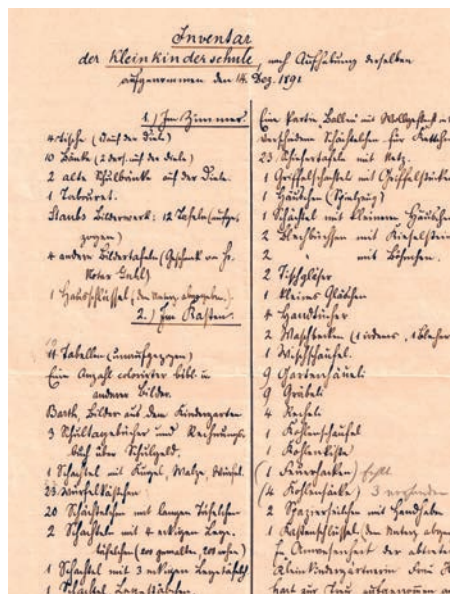 Inventar
der Kleinkinderschule, nach Aufhebung derselben
aufgenommen den 14. Dez. 1891
1.) Im Zimmer.
4 Tische (1 auf der Diele)
10 Bänke (2 ders. auf der Diele)
2 alte Schulbänke auf der Diele.
1 Tabouret.
Staubs Bilderwerk: 12 Tafeln (aufge-
zogen)
4 andere Bildertafeln (Geschenk von Hr.
Notar
1 Hausschlüssel (den abgegeben).
2.) Im Kasten.
11 Tabellen (unaufgezogen)
Eine Anzahl colorierter bibl. u.
anderer Bilder.
Barth, Bilder aus dem Kindergarten
3 Schultagebücher und Rechnungs-
buch über Schulgeld.
1 Schachtel mit Kugel, Walze, Würfel.
23 Würfelkästchen
20 Schächtelchen mit langen Täfelchen
2 Schachteln mit 4 eckigen Lege-
täfelchen (200 gemalten, 200 rohen)
1 Schachtel mit 3 eckigen Legetäfelch
1 Schachtel Legestäbchen.
Eine Partie Ballen mit
Verschiedene Schächtelchen für
23 Schiefertafeln mit Netz.
1 Griffelschachtel mit Griffelstücken
1 Häuschen (Spielzeug)
1 Schachtel mit kleinem Häuschen
2 Blechbüchsen mit Kieselstein
2 " mit Böhnchen.
2 Tischgläser
1 kleines Gläschen
4 Handtücher
2 Waschbecken (1 irdenes, 1 blecher
1 Wischschaufel.
9 Gartenhäueli
9 Gräbeli
4 Recheli
1 Kohlenschaufel
1 Kohlenkiste
(1 Feuerhacken) fehlt
(4 Kohlensäcke) 3 vorhanden
2 Spazierseilchen mit Handhaben
1 Kastenschlüssel (den abge
In Anwesenheit der abtreten
Kleinkindergärtnerin Frau H
hart zur aufgenommen